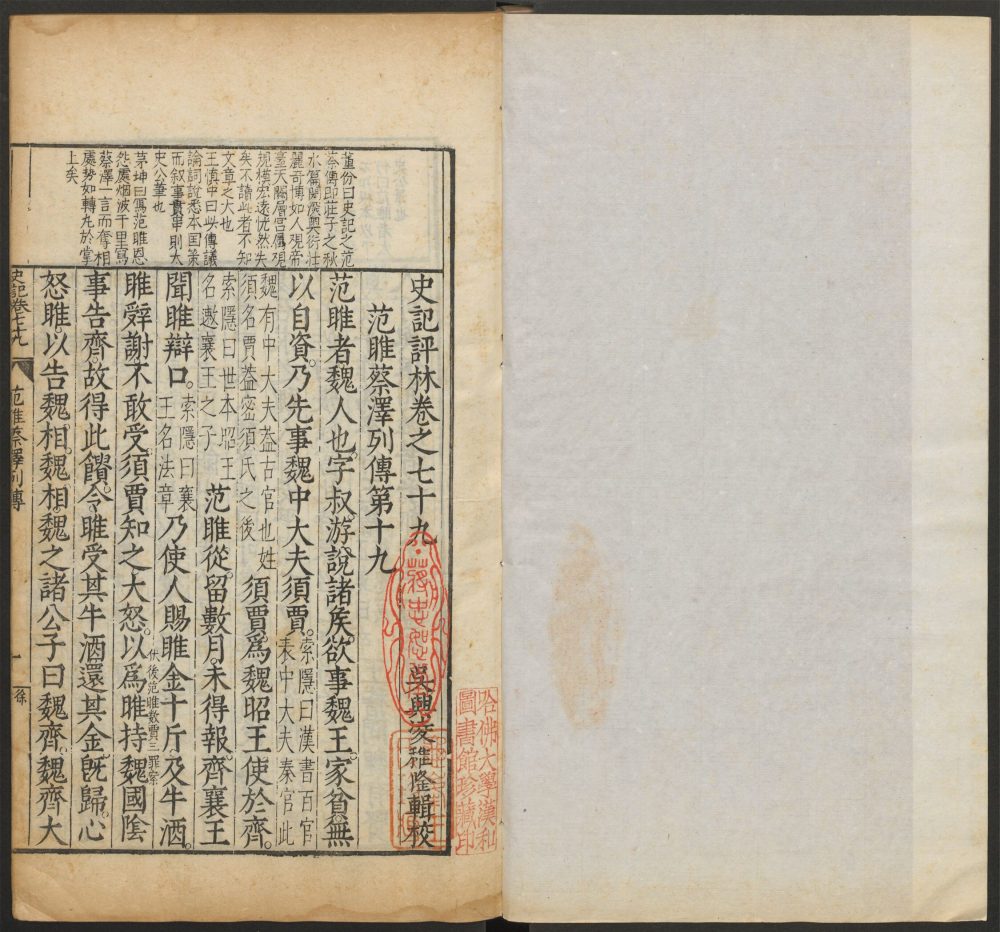 史記評林卷之七十九
吳興凌稚隆輯校
范雎蔡澤列傳第十九
范雎者魏人也字叔游說諸矦欲事魏王家貧無
以自資乃先事魏中大夫須賈索隱曰漢書百官表中大夫秦官此
魏有中大夫蓋古官也姓須名賈蓋密須氏之後須賈爲魏昭王使於齊
索隱曰世本昭王名遫襄王之子范雎從留數月未得報齊襄王
聞雎辯口索隱曰襄王名法章乃使人賜雎金十斤及牛酒
雎辤謝不敢受須賈知之大怒以爲雎持魏國陰
伏後范雎數賈三罪案
事告齊故得此饋令雎受其牛酒還其金旣歸心
怒雎以告魏相魏相魏之諸公子曰魏齊魏齊大
董份曰史記之范
蔡傳卽莊子之秋
水篇閎深奧衍壯
麗奇博如人視帝
臺天闕層宮廣視
規模宏遠恍然失
矣不讀此者不知
文章之大也
王慎中曰此傳議
論詞說悉本国策
而叙事貫串則太
史公筆也
茅坤曰寫范雎恩
怨處烟波千里寫
蔡澤一言而奪相
處勢如轉丸於掌
上矣
史記卷七十九
范雎蔡澤列傳
一
徐
哈佛大學漢和
圖書館珍藏印